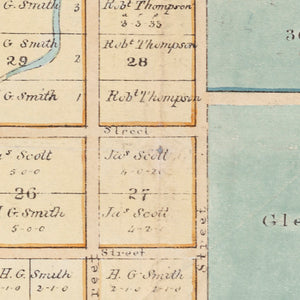 G. Smith 3
Robt Thompson
3·5·33
G. Smith
Robt Thompson
29 2
28
G. Smith 1
Robt Thompson
Street
Jas Scott
5-0-0
Jas Scott
26
27
H G. Smith
5-0-0
Jas Scott
4-2-1
Gle
Street
Street
H. G. Smith
2-1-0
H G. Smith
2-1-0